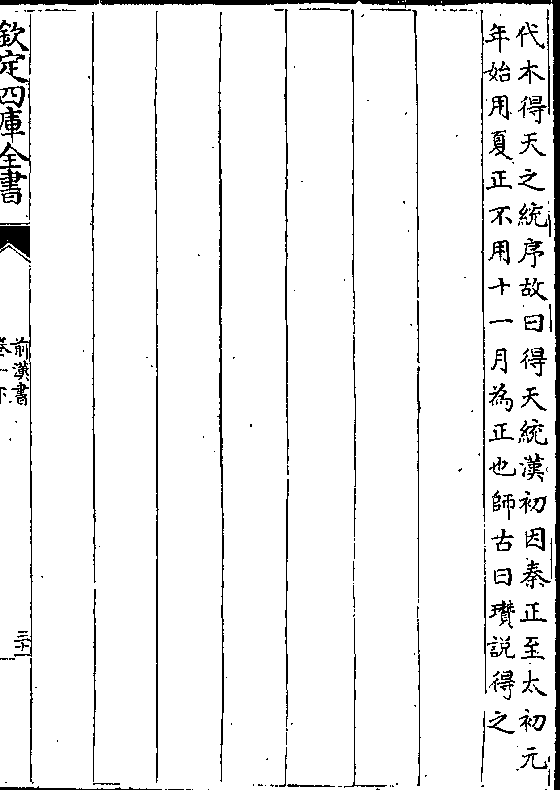 代木得天之統序故曰得天統漢初因秦正至太初元
年始用夏正不用十一月為正也師古曰瓚説得之
欽定四庫全書
前漢書
卷一下
三十一